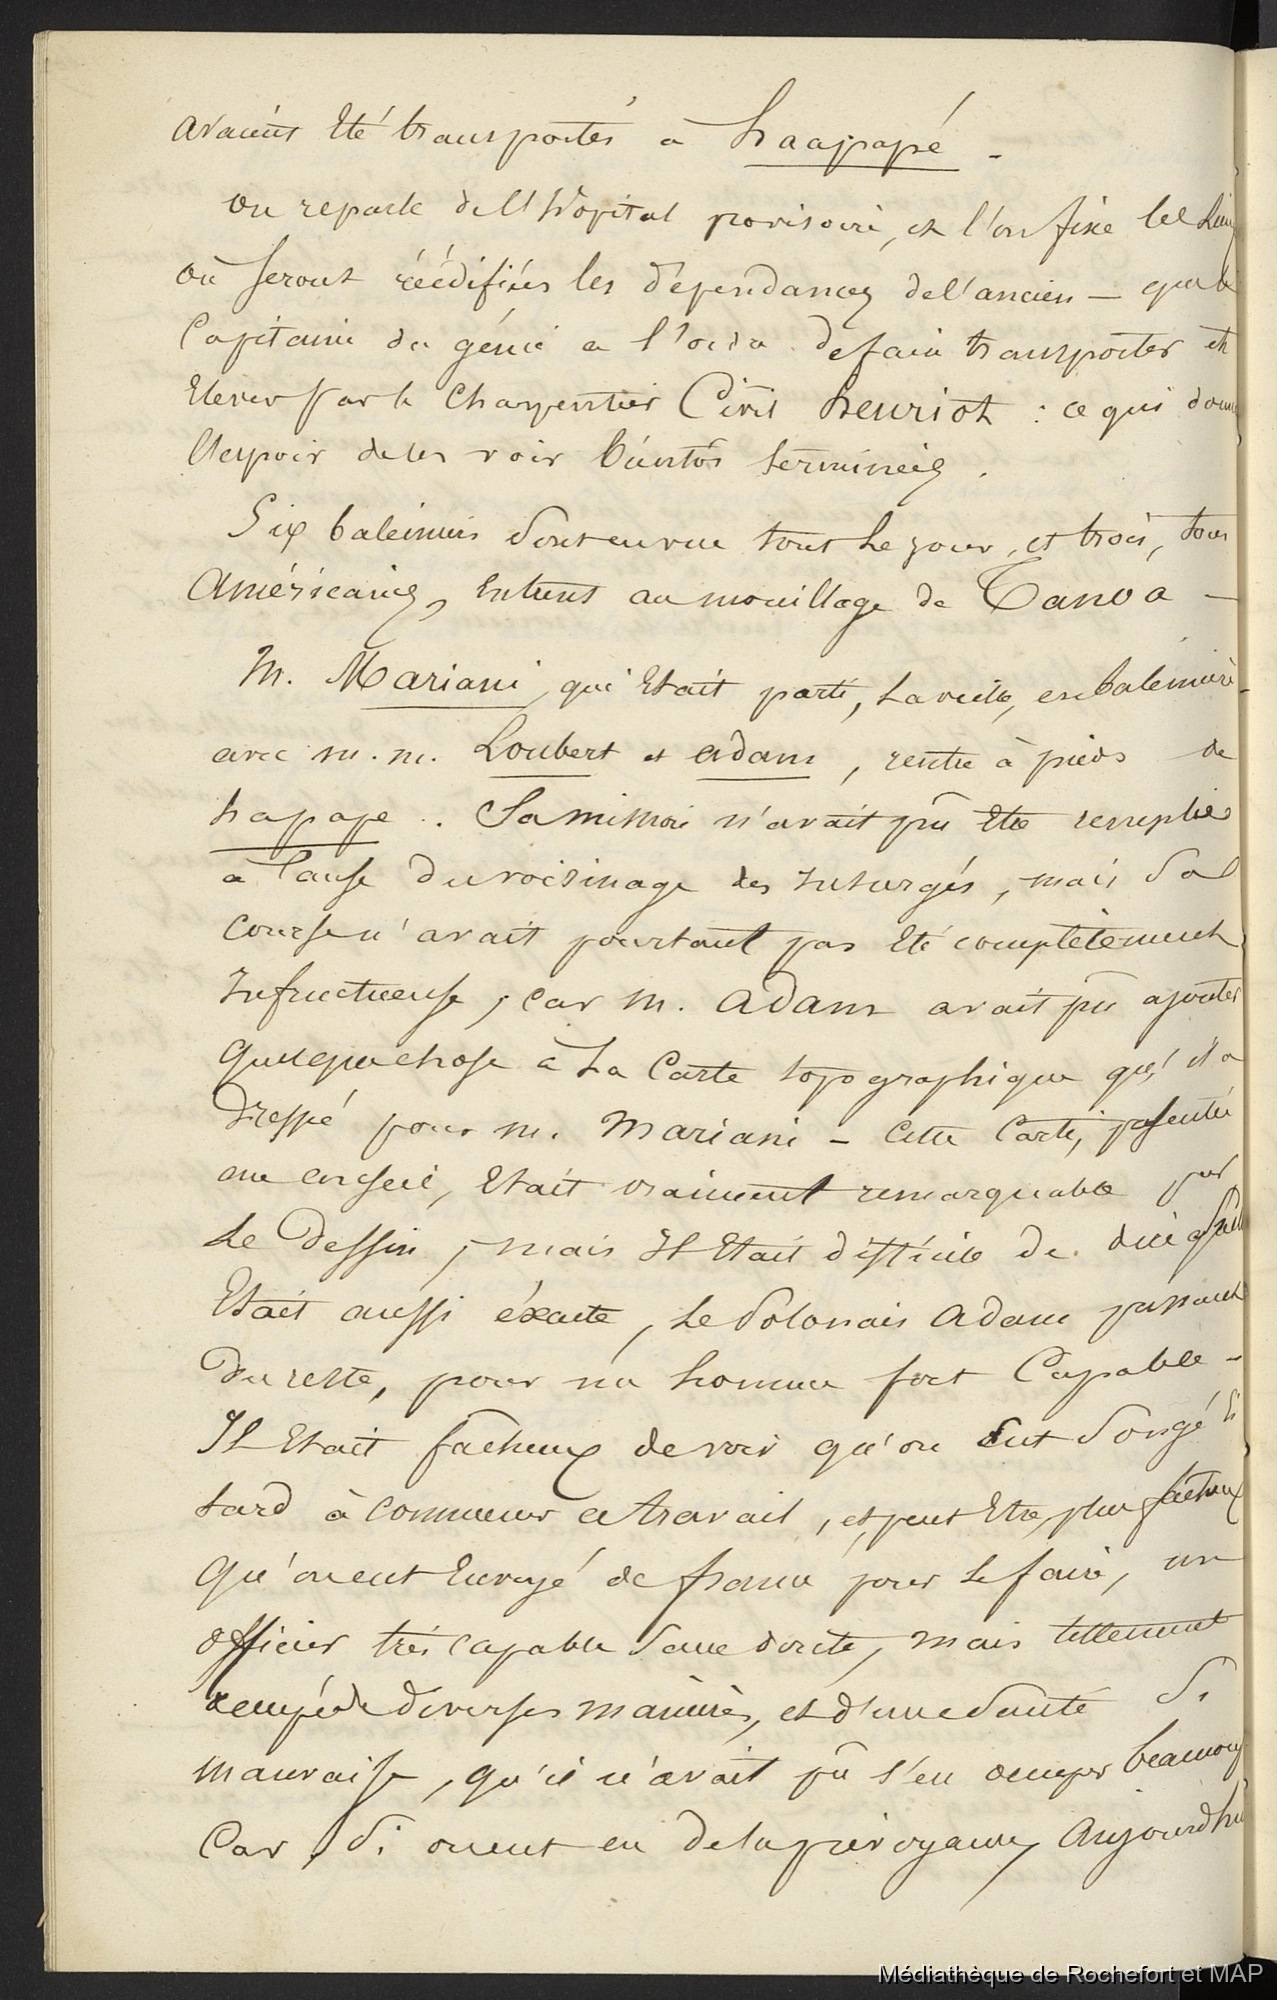 avaient été transportés à haapapé -
on reparle de l'hôpital provisoire, et l'on fixe les lieux
où seront réédifiées les dépendances de l'ancien - que le
Capitaine du génie a l'ordre de faire transporter et
Elever par le Charpentier Civil henriot : ce qui donne
l'espoir de les voir bientôt terminées.
Six baleiniers sont en vue tout le jour, et trois, tous
Américains, entrent au mouillage de Tanoa -
M. Mariani, qui Etait parti, la veille, en baleinière
avec m. m. Loubert et adam, rentre à pieds de
hapape. Sa mission n'avait pû Etre remplie
à cause du voisinage des Insurgés, mais sa
course n'avait pourtant pas Eté complètement
Infructueuse, car m. adam avait pû ajouter
quelque chose à la Carte topographique qu'il a
Dressé pour m. Mariani - Cette Carte, présentée
au conseil, Etait vraiment remarquable par
le Dessin, mais Il Etait difficile de dire si elle
Etait aussi éxacte, le Polonais Adam passant
Du reste, pour un homme fort Capable -
Il Etait facheux de voir qu'on eut songé si
tard à commencer ce travail, et peut Etre plus facheux
qu'on eut Envoyé de france pour le faire, un
officier très capable sans doute, mais tellement
occupé de diverses manières, et d'une santé si
mauvaise, qu'il n'avait pû s'en occuper beaucoup
Car, si on eut eu de la prévoyance, Aujourd'hui
Médiathèque de Rochefort et MAP